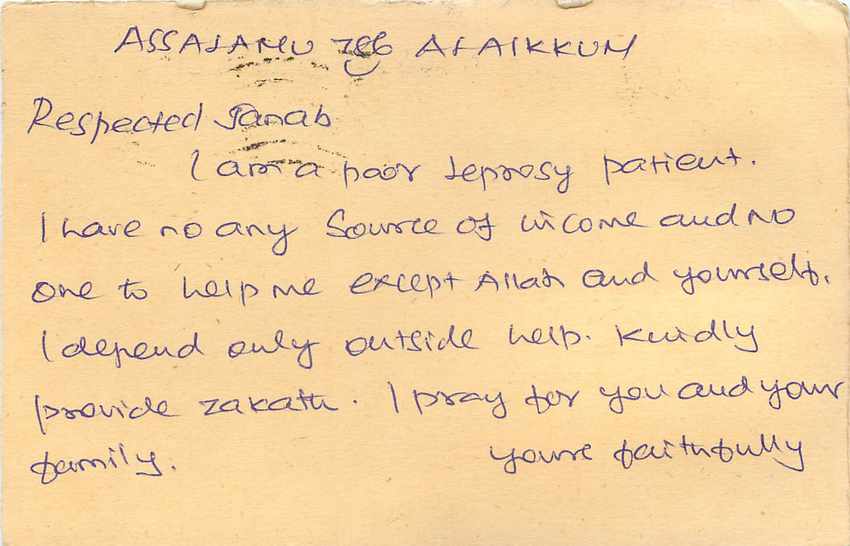 ASSALAMU 786 ALAIKKUM
Respected Janab
I am a poor leprosy patient.
I have no any source of income and no
one to help me except Allah and yourself.
I depend only outside help. Kindly
provide zakath. I pray for you and your
family. yours faithfully